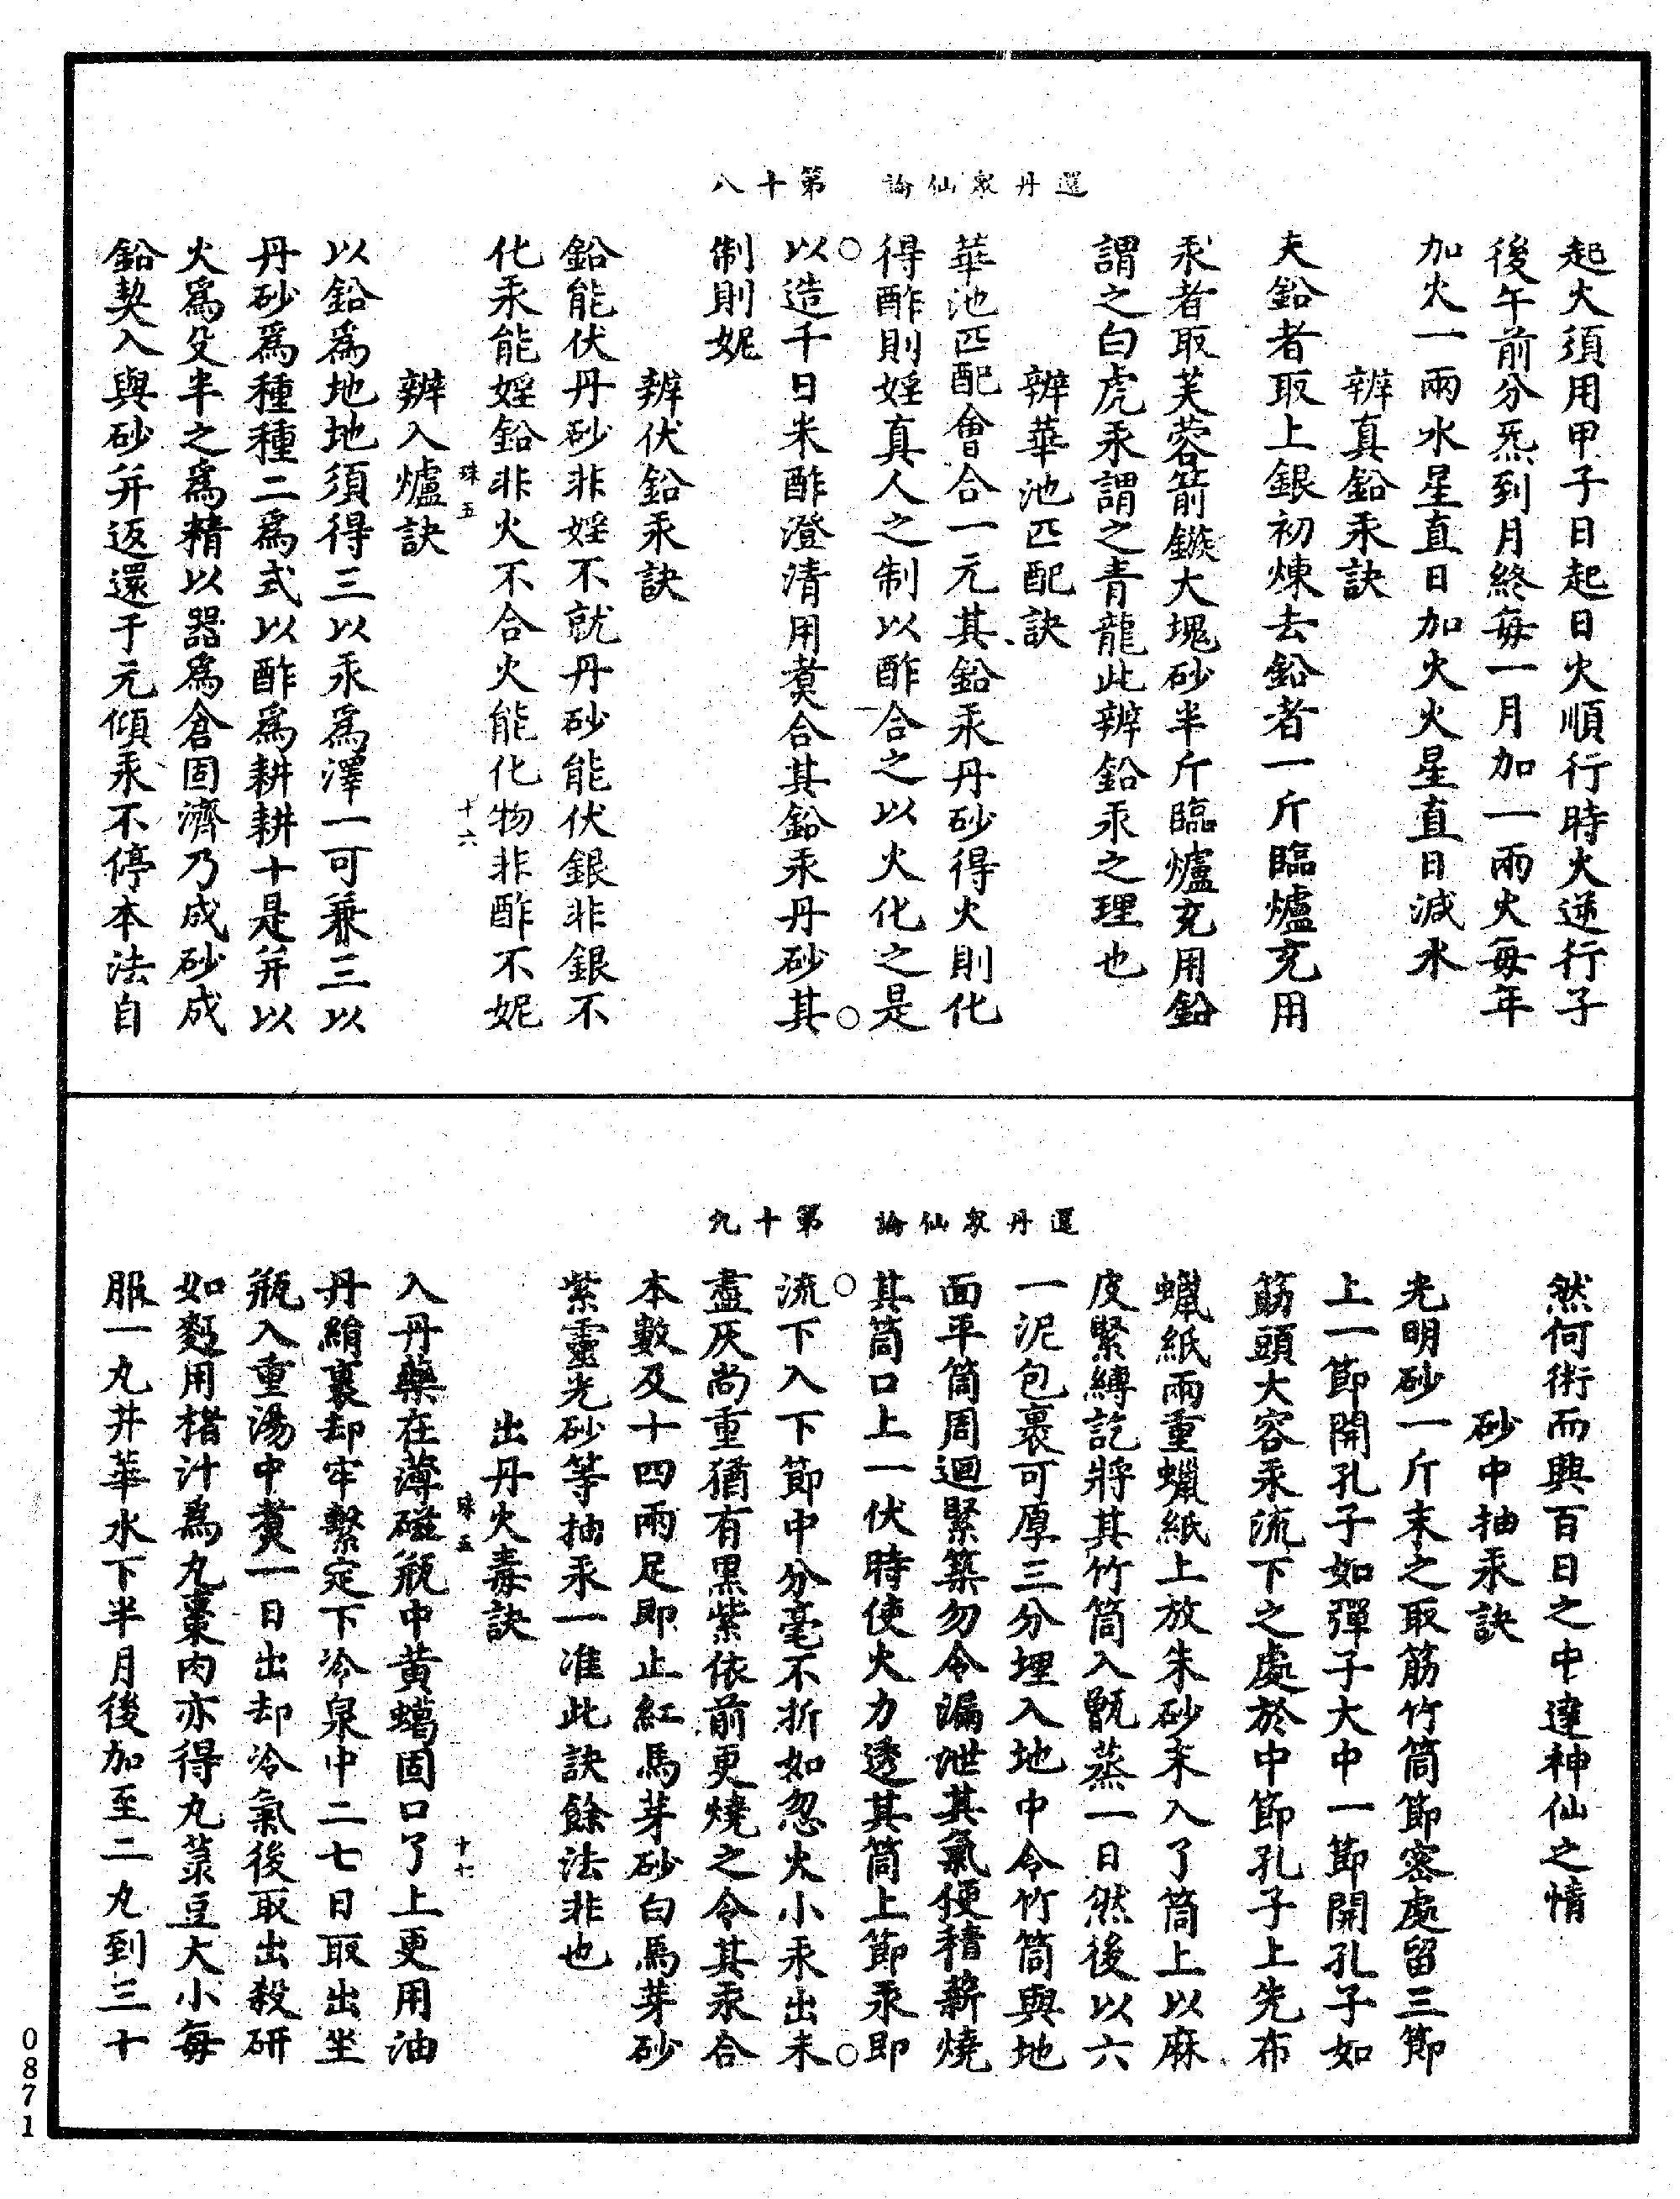 還丹衆仙論　第十八
起火須用甲子日起日火順行時火逆行子
後午前分炁到月終每一月加一兩火每年
加火一兩水星直日加火火星直日減水
辨真鉛汞訣
夫鉛者取上銀初煉去鉛者一斤臨爐充用
汞者取芙蓉箭鏃大塊砂半斤臨爐充用鉛
謂之白虎汞謂之青龍此辨鉛汞之理也
辨華池匹配訣
華池匹配會合一元其鉛汞丹砂得火則化
得酢則婬真人之制以酢合之以火化之是
以造千日米酢澄清用煑合其鉛汞丹砂其
制則妮
辨伏鉛汞訣
鉛能伏丹砂非婬不就丹砂能伏銀非銀不
化汞能婬鉛非火不合火能化物非酢不妮
珠五　十六
辨入爐訣
以鉛爲地地須得三以汞爲澤一可兼三以
丹砂爲種種二爲式以酢爲耕耕十是并以
火爲父半之爲精以器爲倉固濟乃成砂成
鉛契入與砂并返還于元傾汞不停本法自
還丹衆仙論　第十九
然何術而與百日之中達神仙之情
砂中抽汞訣
光明砂一斤末之取筋竹筒節密處留三節
上一節開孔子如彈子大中一節開孔子如
筯頭大容汞流下之處於中節孔子上先布
蠟紙兩重蠟紙上放朱砂末入了筒上以麻
皮緊縛訖將其竹筒入甑蒸一日然後以六
一泥包裹可厚三分埋入地中令竹筒與地
面平筒周迴緊築勿令漏泄其氣便積薪燒
其筒口上一伏時使火力透其筒上節汞即
流下入下節中分毫不折如忽火小汞出未
盡灰尚重猶有黑紫依前更燒之令其汞合
本數及十四兩足即止紅馬芽砂白馬芽砂
紫靈光砂等抽汞一准此訣餘法非也
出丹火毒訣
珠五　十七
入丹藥在薄磁瓶中黃蠟固口了上更用油
丹絹裹却牢繫定下冷泉中二七日取出坐
瓶入重湯中煑一日出却冷氣後取出殺研
如麫用楮汁爲丸棗肉亦得丸菉豆大小每
服一丸井華水下半月後加至二丸到三十
0871